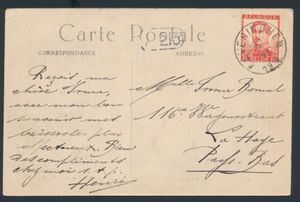 Carte Postale
CORRESPONDANCE
ADRESSE
BELGIQUE
215
Reçois, ma
chère Irma,
avec mon bon
souvenir mes
baisers les plus
affectueux. Bien
des compliments
chez moi s. t. p.
Henri
Melle Irma Bomal
116a Wagenstraat
La Haye
Pays-Bas